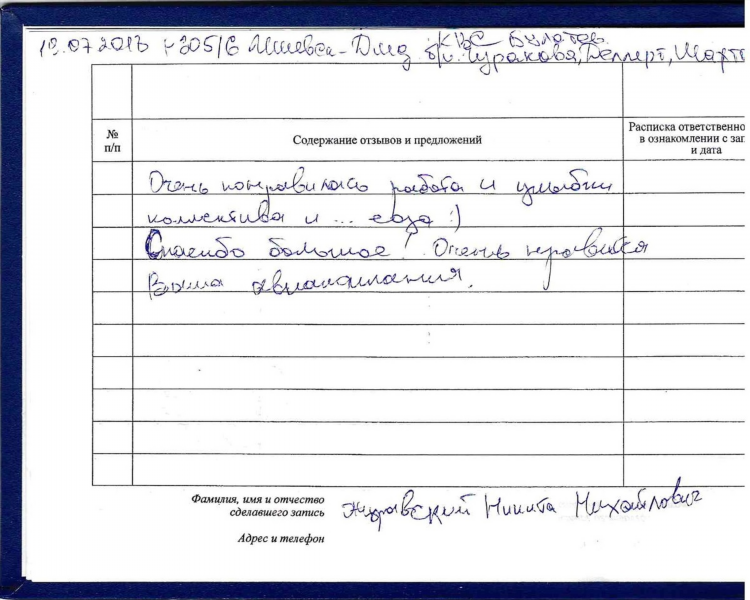 13.07.2013 г 305/6 Ижевск-Дмд КВС Булатов
б/п: Чуракова, Делперт, Шарт
№ п/п
Содержание отзывов и предложений
Расписка ответственно
в ознакомлении с зап
и дата
Очень понравилась работа и улыбки
коллектива и ... еда :)
Спасибо большое! Очень нравится
Ваша авиакомпания.
Фамилия, имя и отчество
сделавшего запись
Журавский Никита Михайлович
Адрес и телефон